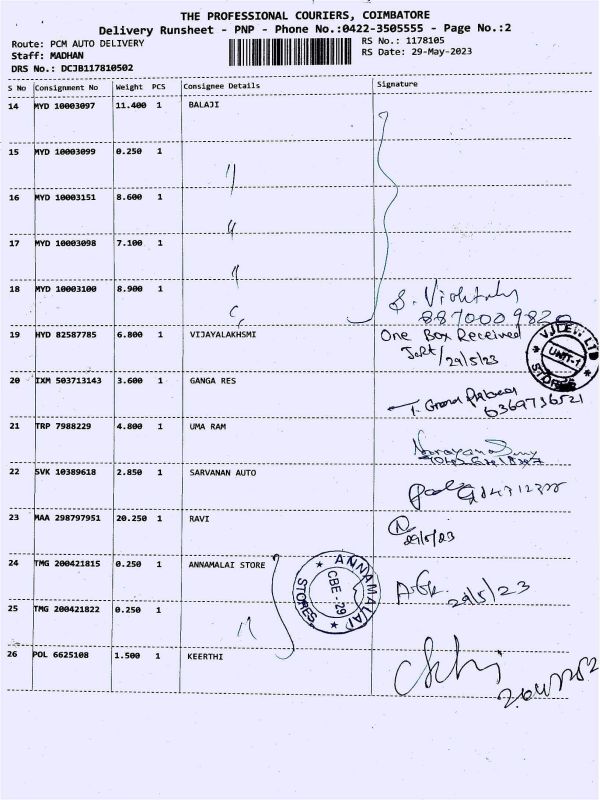 THE PROFESSIONAL COURIERS, COIMBATORE
Delivery Runsheet - PNP - Phone No.:0422-3505555 - Page No.:2
Route: PCM AUTO DELIVERY
RS No.: 1178105
Staff: MADHAN
RS Date: 29-May-2023
DRS No.: DCJB117810502
S No Consignment No Weight PCS Consignee Details Signature
14 MYD 10003097 11.400 1 BALAJI
15 MYD 10003099 0.250 1 "
16 MYD 10003151 8.600 1 "
17 MYD 10003098 7.100 1 "
18 MYD 10003100 8.900 1 "
8870009820
19 HYD 82587785 6.800 1 VIJAYALAKHSMI One Box Received
29/5/23
VJLEW LTD
UNIT-1
STORES
20 IXM 503713143 3.600 1 GANGA RES
21 TRP 7988229 4.800 1 UMA RAM
22 SVK 10389618 2.850 1 SARVANAN AUTO
23 MAA 298797951 20.250 1 RAVI
29/5/23
24 TMG 200421815 0.250 1 ANNAMALAI STORE
ANNAMALAI
CBE-29
STORES
29/5/23
25 TMG 200421822 0.250 1 "
26 POL 6625108 1.500 1 KEERTHI